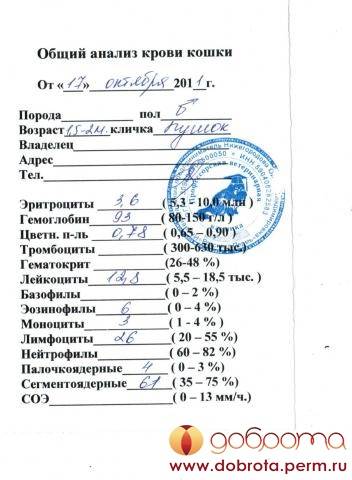 Общий анализ крови кошки
От «17» октября 2011г.
Порода пол
Возраст 1,5-2м. кличка Пушок
Владелец
Адрес
Тел.
Эритроциты 3,6 ( 5,3 - 10,0 млн )
Гемоглобин 93 ( 80-150 г/л )
Цветн. п-ль 0,78 ( 0,65 – 0,90 )
Тромбоциты ( 300-630 тыс.)
Гематокрит (26-48 %)
Лейкоциты 12,8 ( 5,5 – 18,5 тыс. )
Базофилы ( 0 – 2 %)
Эозинофилы 6 ( 0 – 4 %)
Моноциты 3 ( 1 - 4 % )
Лимфоциты 26 ( 20 – 55 %)
Нейтрофилы ( 60 – 82 %)
Палочкоядерные 4 ( 0 – 3 %)
Сегментоядерные 61 ( 35 – 75 %)
СОЭ ( 0 – 13 мм/ч.)
доброта
www.dobrota.perm.ru